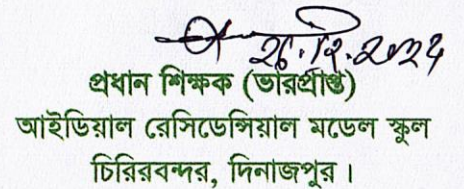 প্রধান শিক্ষক (ভারপ্রাপ্ত)
আইডিয়াল রেসিডেন্সিয়াল মডেল স্কুল
চিরিরবন্দর, দিনাজপুর।